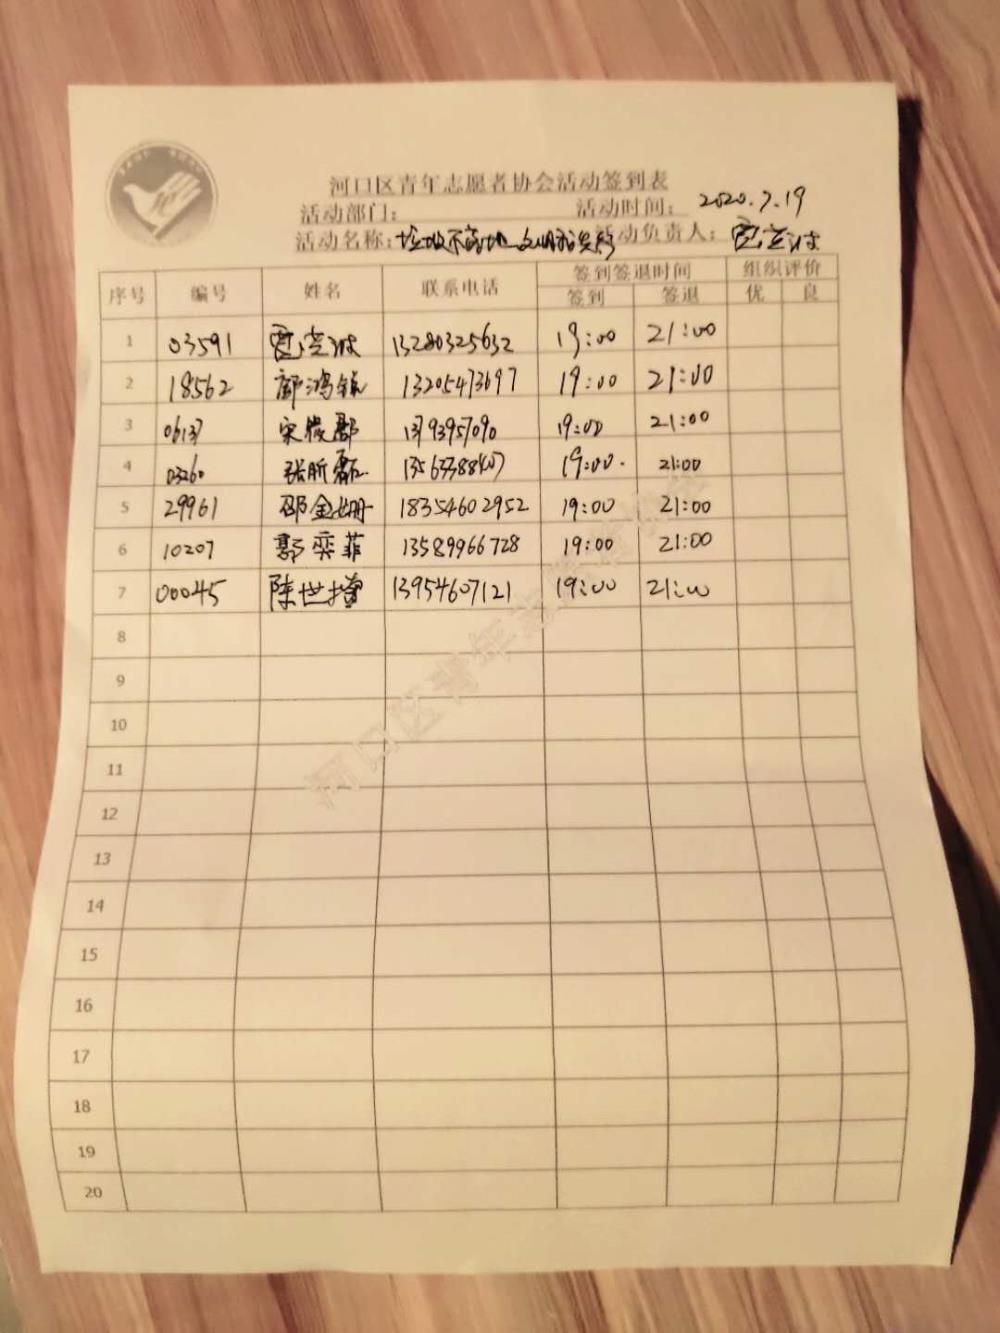 河口区青年志愿者协会活动签到表
活动部门： 活动时间： 2020.7.19
活动名称：垃圾不落地 文明 活动负责人：
序号 编号 姓名 联系电话 签到签退时间 组织评价
签到 签退 优 良
1 03591 13280325632 19:00 21:00
2 18562 13205473697 19:00 21:00
3 06137 19:00 21:00
4 03260 19:00. 21:00
5 29961 邵金姗 18354602952 19:00 21:00
6 10207 郭奕菲 13589966728 19:00 21:00
7 00045 陈世 13954607121 19:00 21:00
8
9
10
11
12
13
14
15
16
17
18
19
20
河口区青年志愿者协会